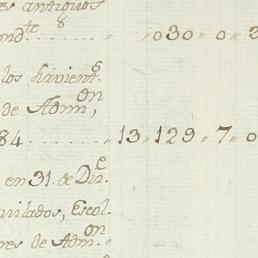 es antiguos
ond.te 8 . . . . . . . „ „ 030 „ 0 „ 2
los havient.s
de Adm.on,
84 . . . . . . . „ 13 „ 129 „ 7 „ 0
en 31. de Dic.e
uvilados, Escol.
res de Adm.on „